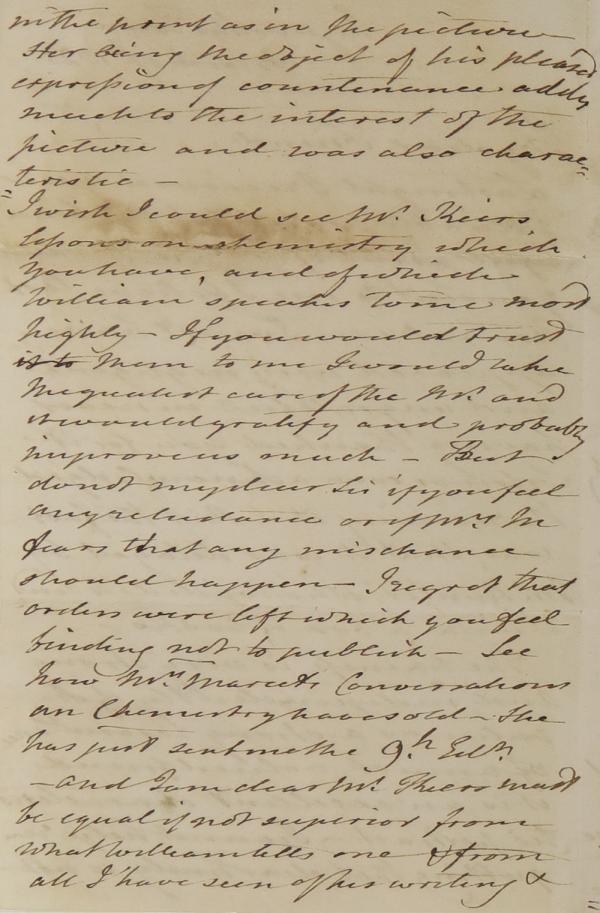 in the point as in the picture
Her being the object of his pleased
expression of countenance adds
much to the interest of the
picture and was also charac=
=teristic —
I wish I could see Mr. Keirs
Lessons on chemistry which
you have, and of which
William speaks to me most
highly — If you would trust
them to me I would take
the greatest care of the Ms. and
it would gratify and probably
improve us much — But
do not my dear Sir if you feel
any reluctance or if Mrs. M
fears that any mischance
should happen — I regret that
orders were left which you feel
binding not to publish — See
how Mrs. Marcets Conversations
on Chemistry have sold — She
has just sent me the 9th. Edtn.
— and I am clear Mr. Keirs must
be equal if not superior from
what William tells me & from
all I have seen of his writing &